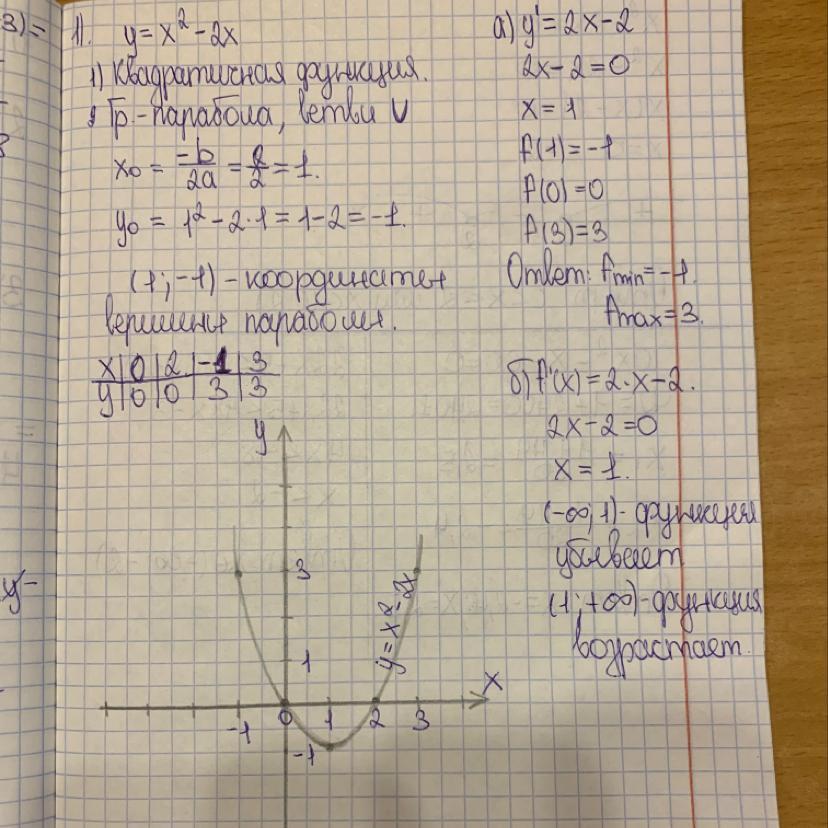 3) =
1). y = x² - 2x
1) Квадратичная функция.
Гр.-парабола, ветви ∪
x₀ = -b/2a = 2/2 = 1.
y₀ = 1² - 2·1 = 1 - 2 = -1.
(1; -1) - координаты
вершины параболы.
x | 0 | 2 | -1 | 3
y | 0 | 0 | 3 | 3
y
3
1
y = x² - 2x
x
-1 0 1 2 3
-1
y -
а) y' = 2x - 2
2x - 2 = 0
x = 1
f(1) = -1
f(0) = 0
f(3) = 3
Ответ: fmin = -1.
fmax = 3.
б) f'(x) = 2·x - 2.
2x - 2 = 0
x = 1.
(-∞; 1) - функция
убывает
(1; +∞) - функция
возрастает.